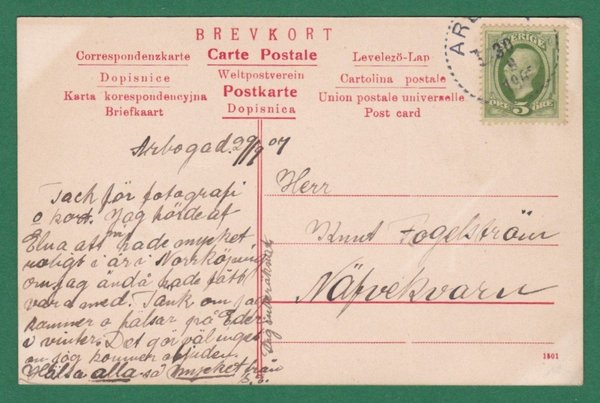 BREVKORT
Correspondenzkarte
Carte Postale
Levelező-Lap
Dopisnice
Weltpostverein
Cartolina postale
Karta korespondencyjna
Postkarte
Union postale universelle
Briefkaart
Dopisnica
Post card
SVERIGE
ÖRE 5 ÖRE
30
Arboga d. 29/9 07
Tack för fotografi
o kort. Jag hörde af
Elna att ni hade mycket
roligt i år i Norrköping
om jag ändå hade fått
vara med. Tänk om jag
kommer o hälsar på Eder
i vinter. Det gör väl inget
om jag kommer objuden.
Hälsa alla så mycket från
Herr
Knut Fogelström
Näfvekvarn
1801